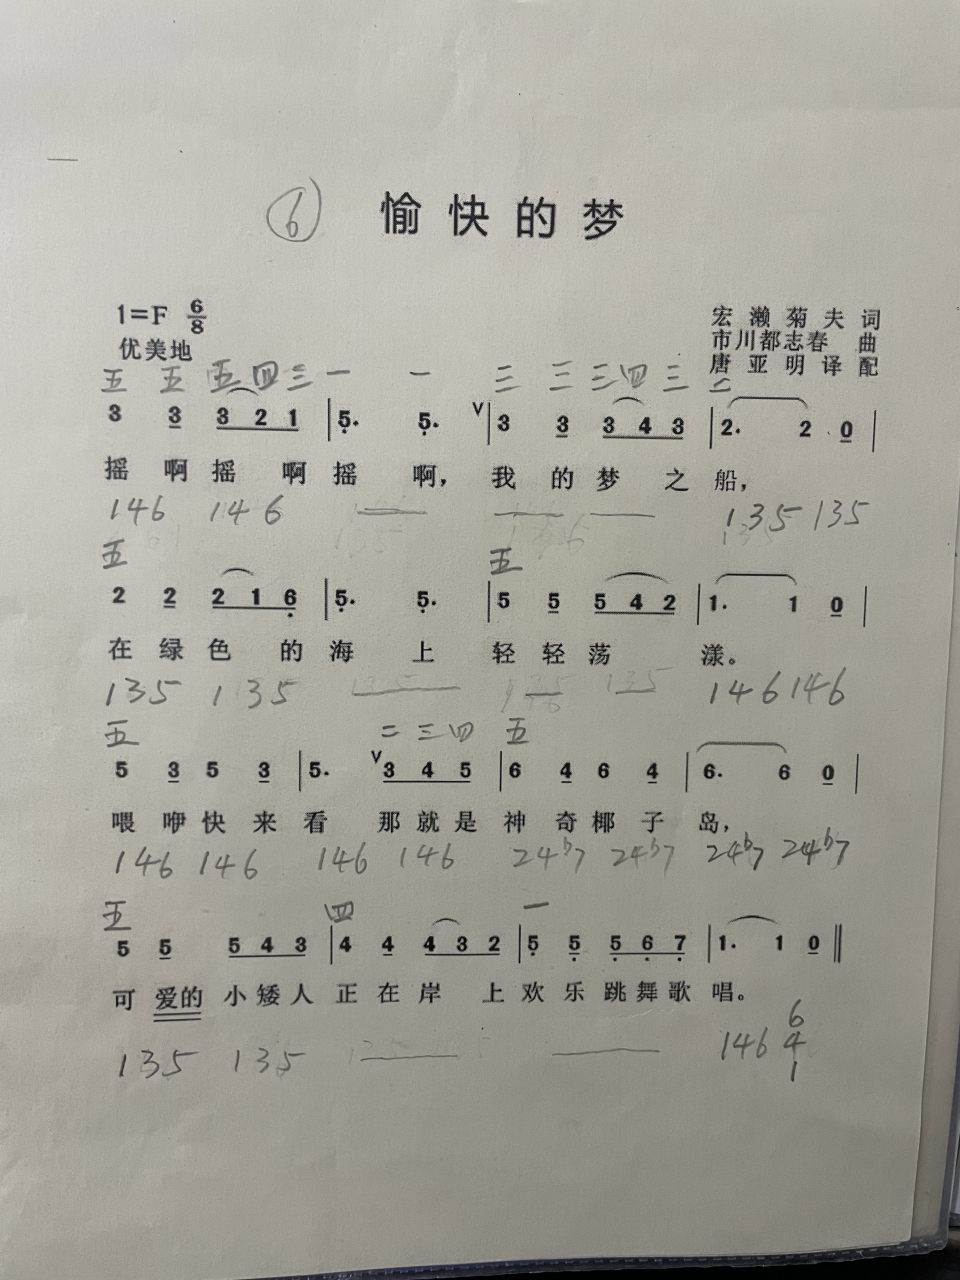 ⑥ 愉快的梦
1=F 6/8
宏濑菊夫 词
优美地
市川都志春 曲
唐亚明 译配
五 五 五 四 三 一 一 三 三 三 四 三 二
3 3 3 2 1 | 5. 5. ∨ | 3 3 3 4 3 | 2. 2 0 |
摇 啊 摇 啊 摇 啊, 我 的 梦 之 船,
146 146 135 135
五 五
2 2 2 1 6 | 5. 5. | 5 5 5 4 2 | 1. 1 0 |
在 绿 色 的 海 上 轻 轻 荡 漾。
135 135 146 146
五 二 三 四 五
5 3 5 3 | 5. ∨ 3 4 5 | 6 4 6 4 | 6. 6 0 |
喂 咿 快 来 看 那 就 是 神 奇 椰 子 岛,
146 146 146 146 24b7 24b7 24b7 24b7
五 四 一
5 5 5 4 3 | 4 4 4 3 2 | 5 5 5 6 7 | 1. 1 0 ‖
可 爱的 小 矮 人 正 在 岸 上 欢 乐 跳 舞 歌 唱。
135 135 146 6 4 1